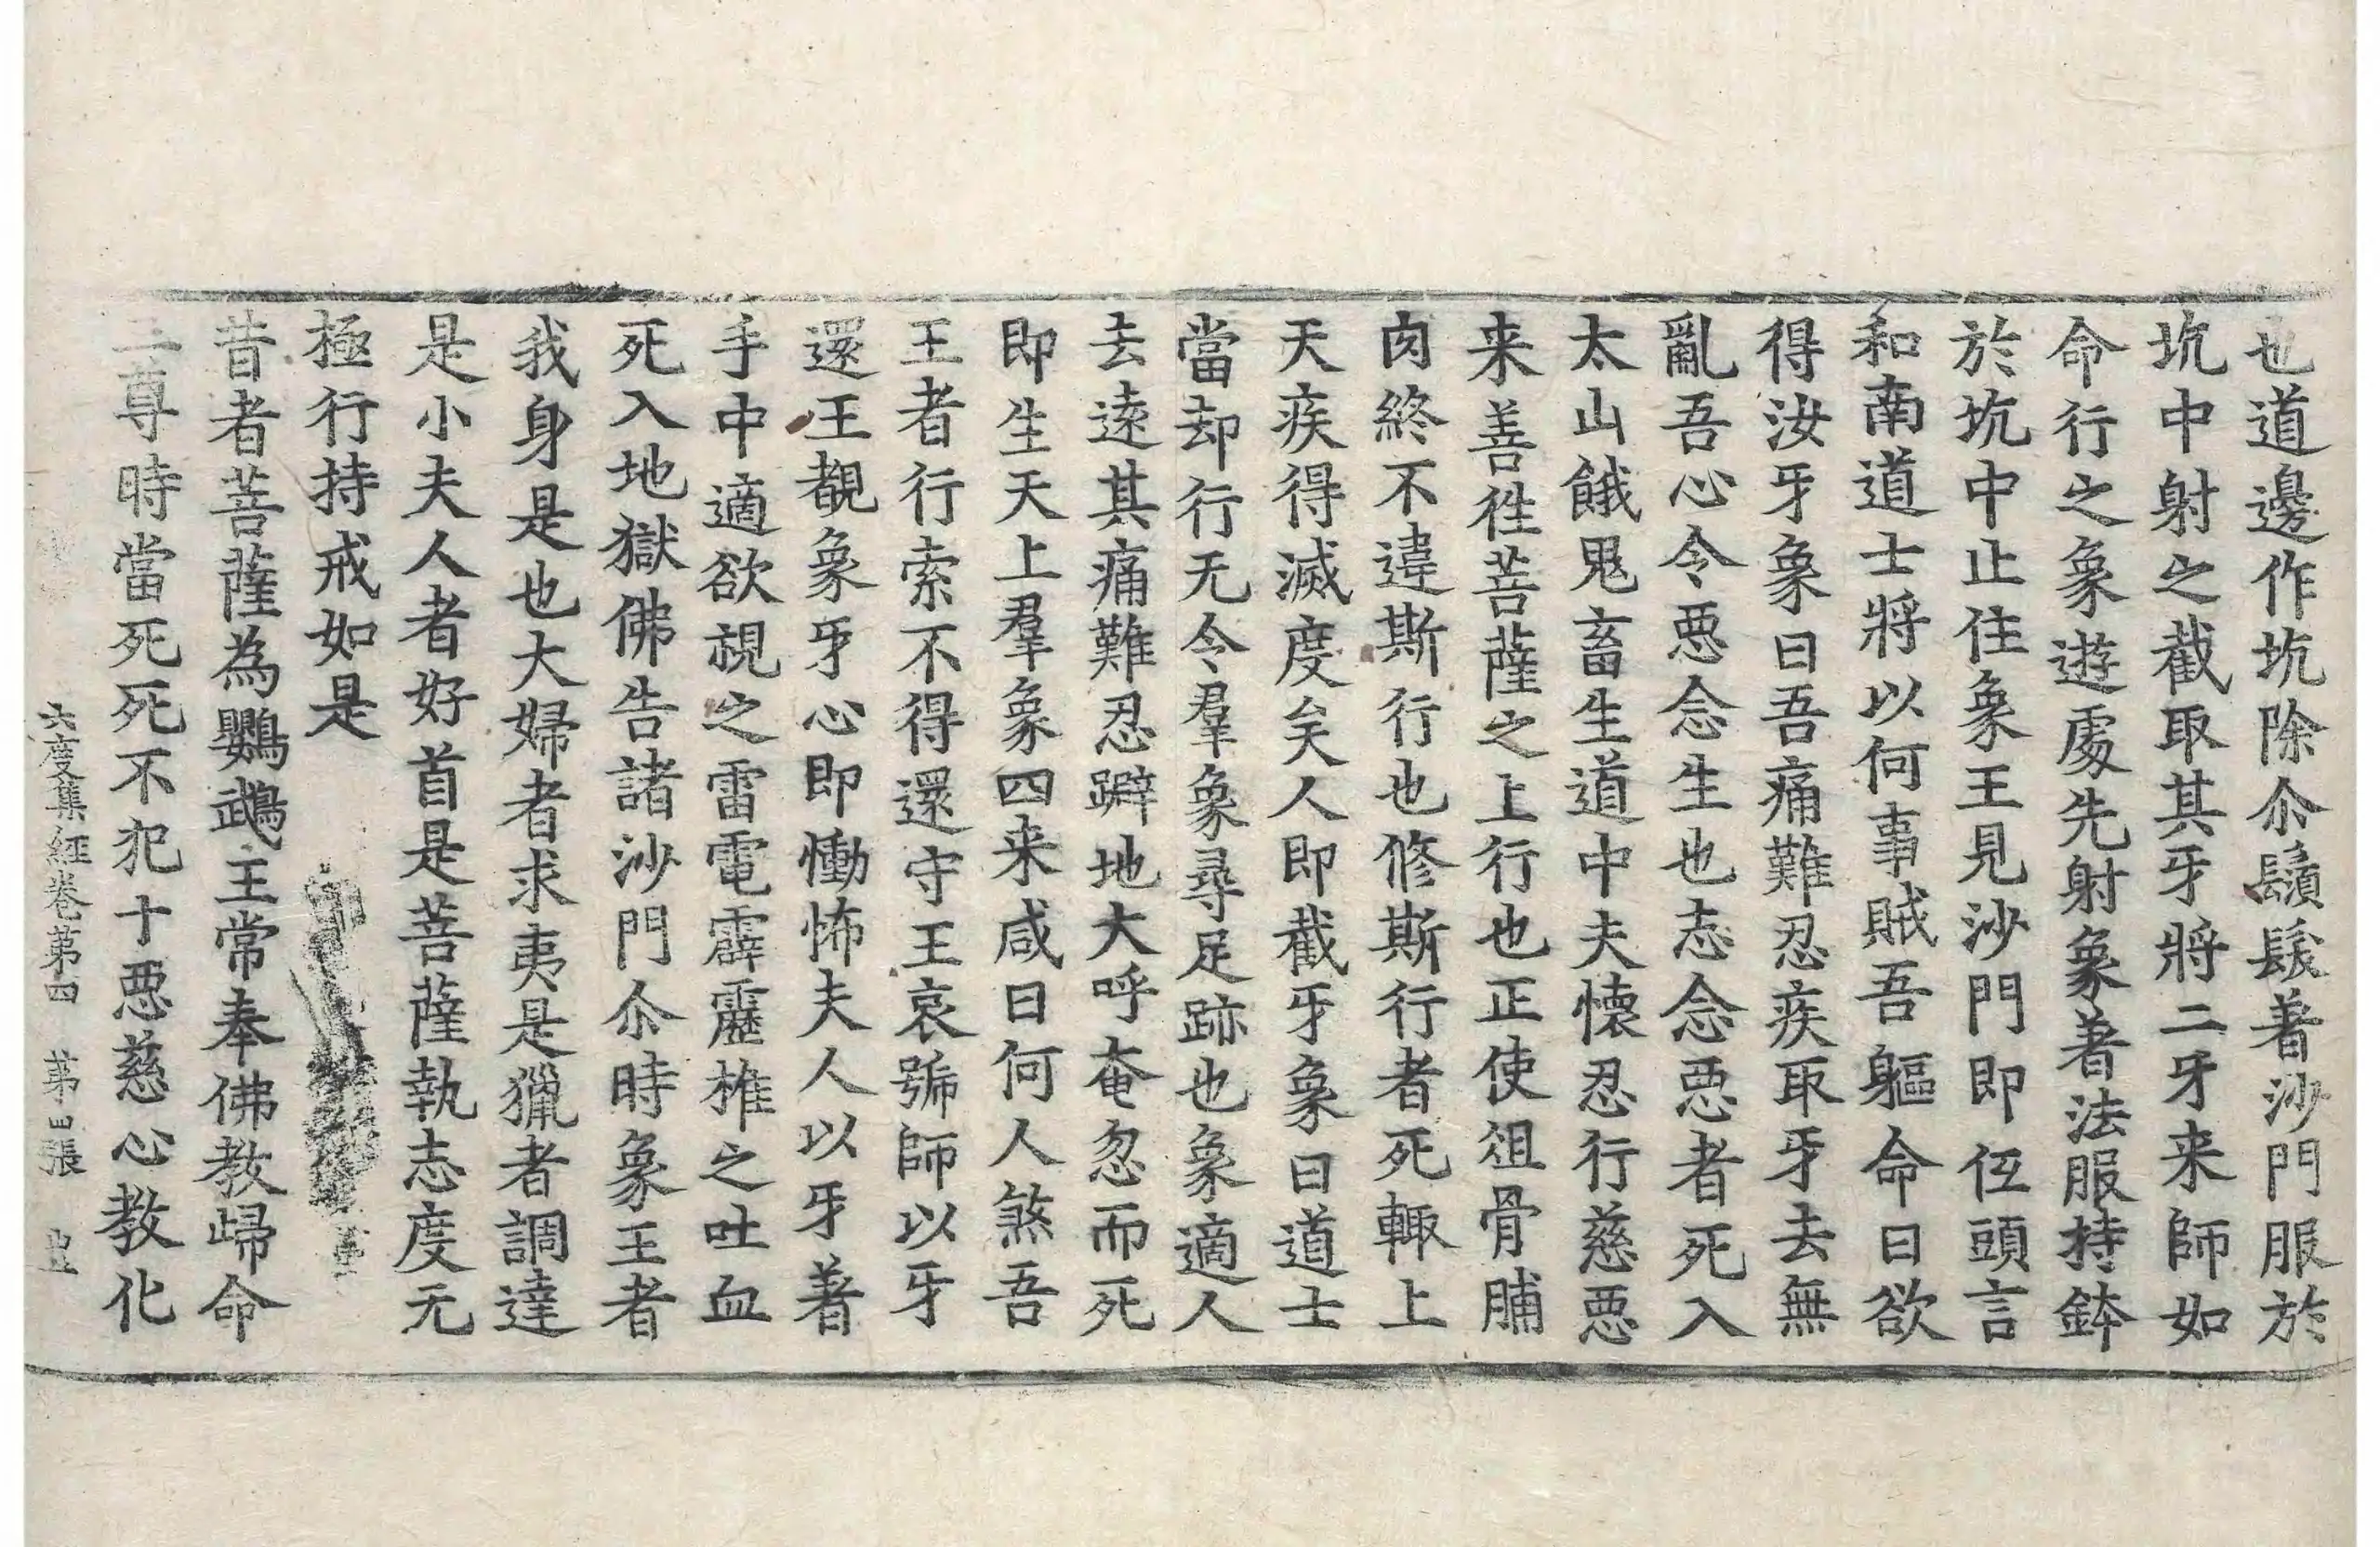 也道邊作坑除尒鬚髮著沙門服於
坑中射之截取其牙將二牙来師如
命行之象遊處先射象著法服持鉢
於坑中止住象王見沙門即伍頭言
和南道士將以何事賊吾軀命曰欲
得汝牙象曰吾痛難忍疾取牙去無
亂吾心令惡念生也志念惡者死入
太山餓鬼畜生道中夫懷忍行慈惡
来善徃菩薩之上行也正使俎骨脯
肉終不違斯行也修斯行者死輙上
天疾得滅度矣人即截牙象曰道士
當却行无令羣象尋足跡也象適人
去逺其痛難忍躃地大呼奄忽而死
即生天上羣象四来咸曰何人煞吾
王者行索不得還守王哀號師以牙
還王覩象牙心即慟怖夫人以牙著
手中適欲視之雷電霹靂椎之吐血
死入地獄佛告諸沙門尒時象王者
我身是也大婦者求夷是獵者調達
是小夫人者好首是菩薩執志度无
極行持戒如是
昔者菩薩為鸚鵡王常奉佛教歸命
三尊時當死死不犯十惡慈心教化
六度集經卷第四 第四張